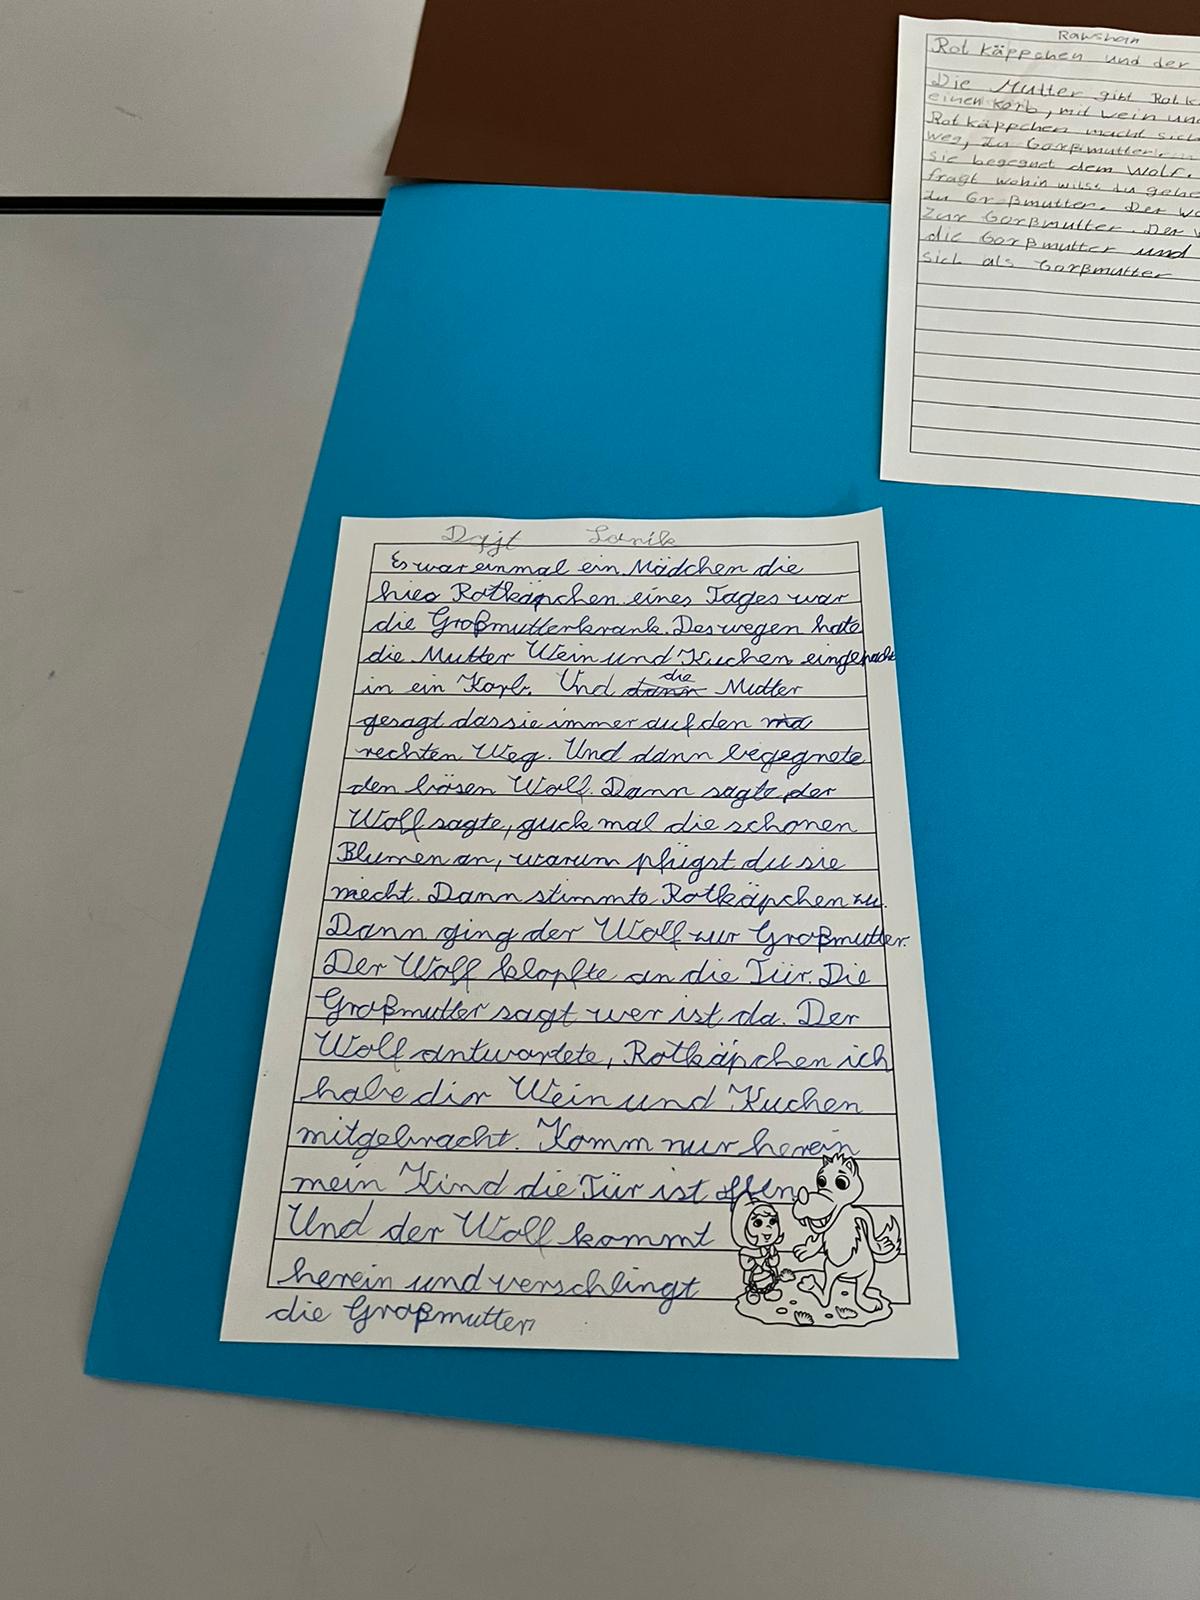 Rawshan
Rot käppchen und der
Die Mutter gibt Rot k
einen Korb, mit vein und
Rot käppchen macht sich
weg, zu Gorßmutter
sie begegnet dem Wolf.
fragt wohin wilst du gehe
zu Gr ßmutter. Der Wo
zur Gorßmutter. Der W
die Gorßmutter und
sich als Gorßmutter
Sanik
Es war einmal ein Mädchen die
hies Rotkäpchen eines Tages war
die Großmutter krank. Deswegen hate
die Mutter Wein und Kuchen eingepackt
in ein Korb. Und die Mutter
gesagt das sie immer auf den
rechten Weg. Und dann begegnete
den bösen Wolf. Dann sagte der
Wolf sagte, guck mal die schonen
Blumen an, warum pflügst du sie
niecht. Dann stimmte Rotkäpchen zu.
Dann ging der Wolf zur Großmutter.
Der Wolf klopfte an die Tür. Die
Großmutter sagt wer ist da. Der
Wolf antwortete, Rotkäpchen ich
habe dir Wein und Kuchen
mitgebracht. Komm nur herein
mein Kind die Tür ist offen
Und der Wolf kommt
herein und verschlingt
die Großmutter.